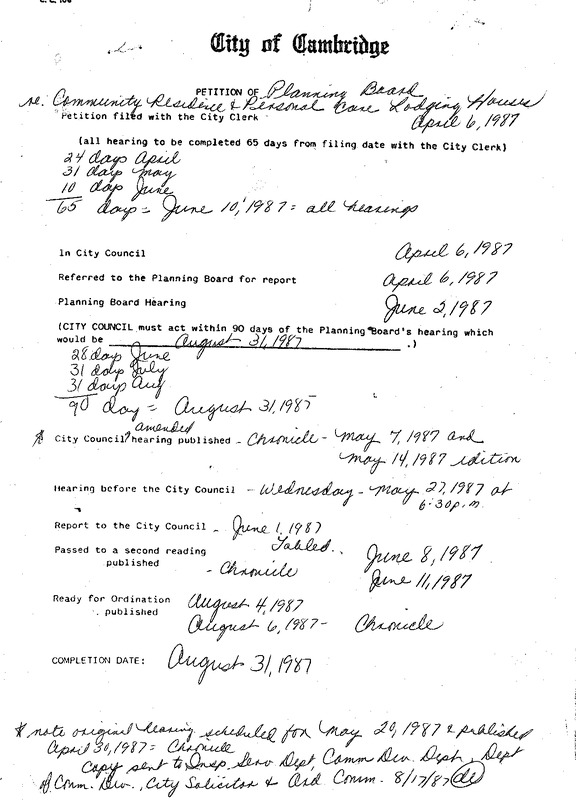 City of Cambridge
PETITION OF Planning Board
re. Community Residence & Personal Care Lodging Houses
Petition filed with the City Clerk April 6, 1987
(all hearing to be completed 65 days from filing date with the City Clerk)
24 days April
31 days May
10 days June
65 days = June 10, 1987 = all hearings
In City Council April 6, 1987
Referred to the Planning Board for report April 6, 1987
Planning Board Hearing June 2, 1987
(CITY COUNCIL must act within 90 days of the Planning Board's hearing which
would be August 31, 1987 .)
28 days June
31 days July
31 days Aug
90 day = August 31, 1987
amended
* City Council hearing published - Chronicle - May 7, 1987 and
May 14, 1987 edition
Hearing before the City Council - Wednesday - May 27, 1987 at
6:30 p.m.
Report to the City Council - June 1, 1987
Tabled..
Passed to a second reading June 8, 1987
published - Chronicle June 11, 1987
Ready for Ordination August 4, 1987
published August 6, 1987 - Chronicle
COMPLETION DATE: August 31, 1987
* note original hearing scheduled for May 20, 1987 & published
April 30, 1987 = Chronicle
Copy sent to Insp. Serv Dept, Comm Dev. Dept, Dept
of Comm. Dev., City Solicitor & Ord Comm. 8/17/87